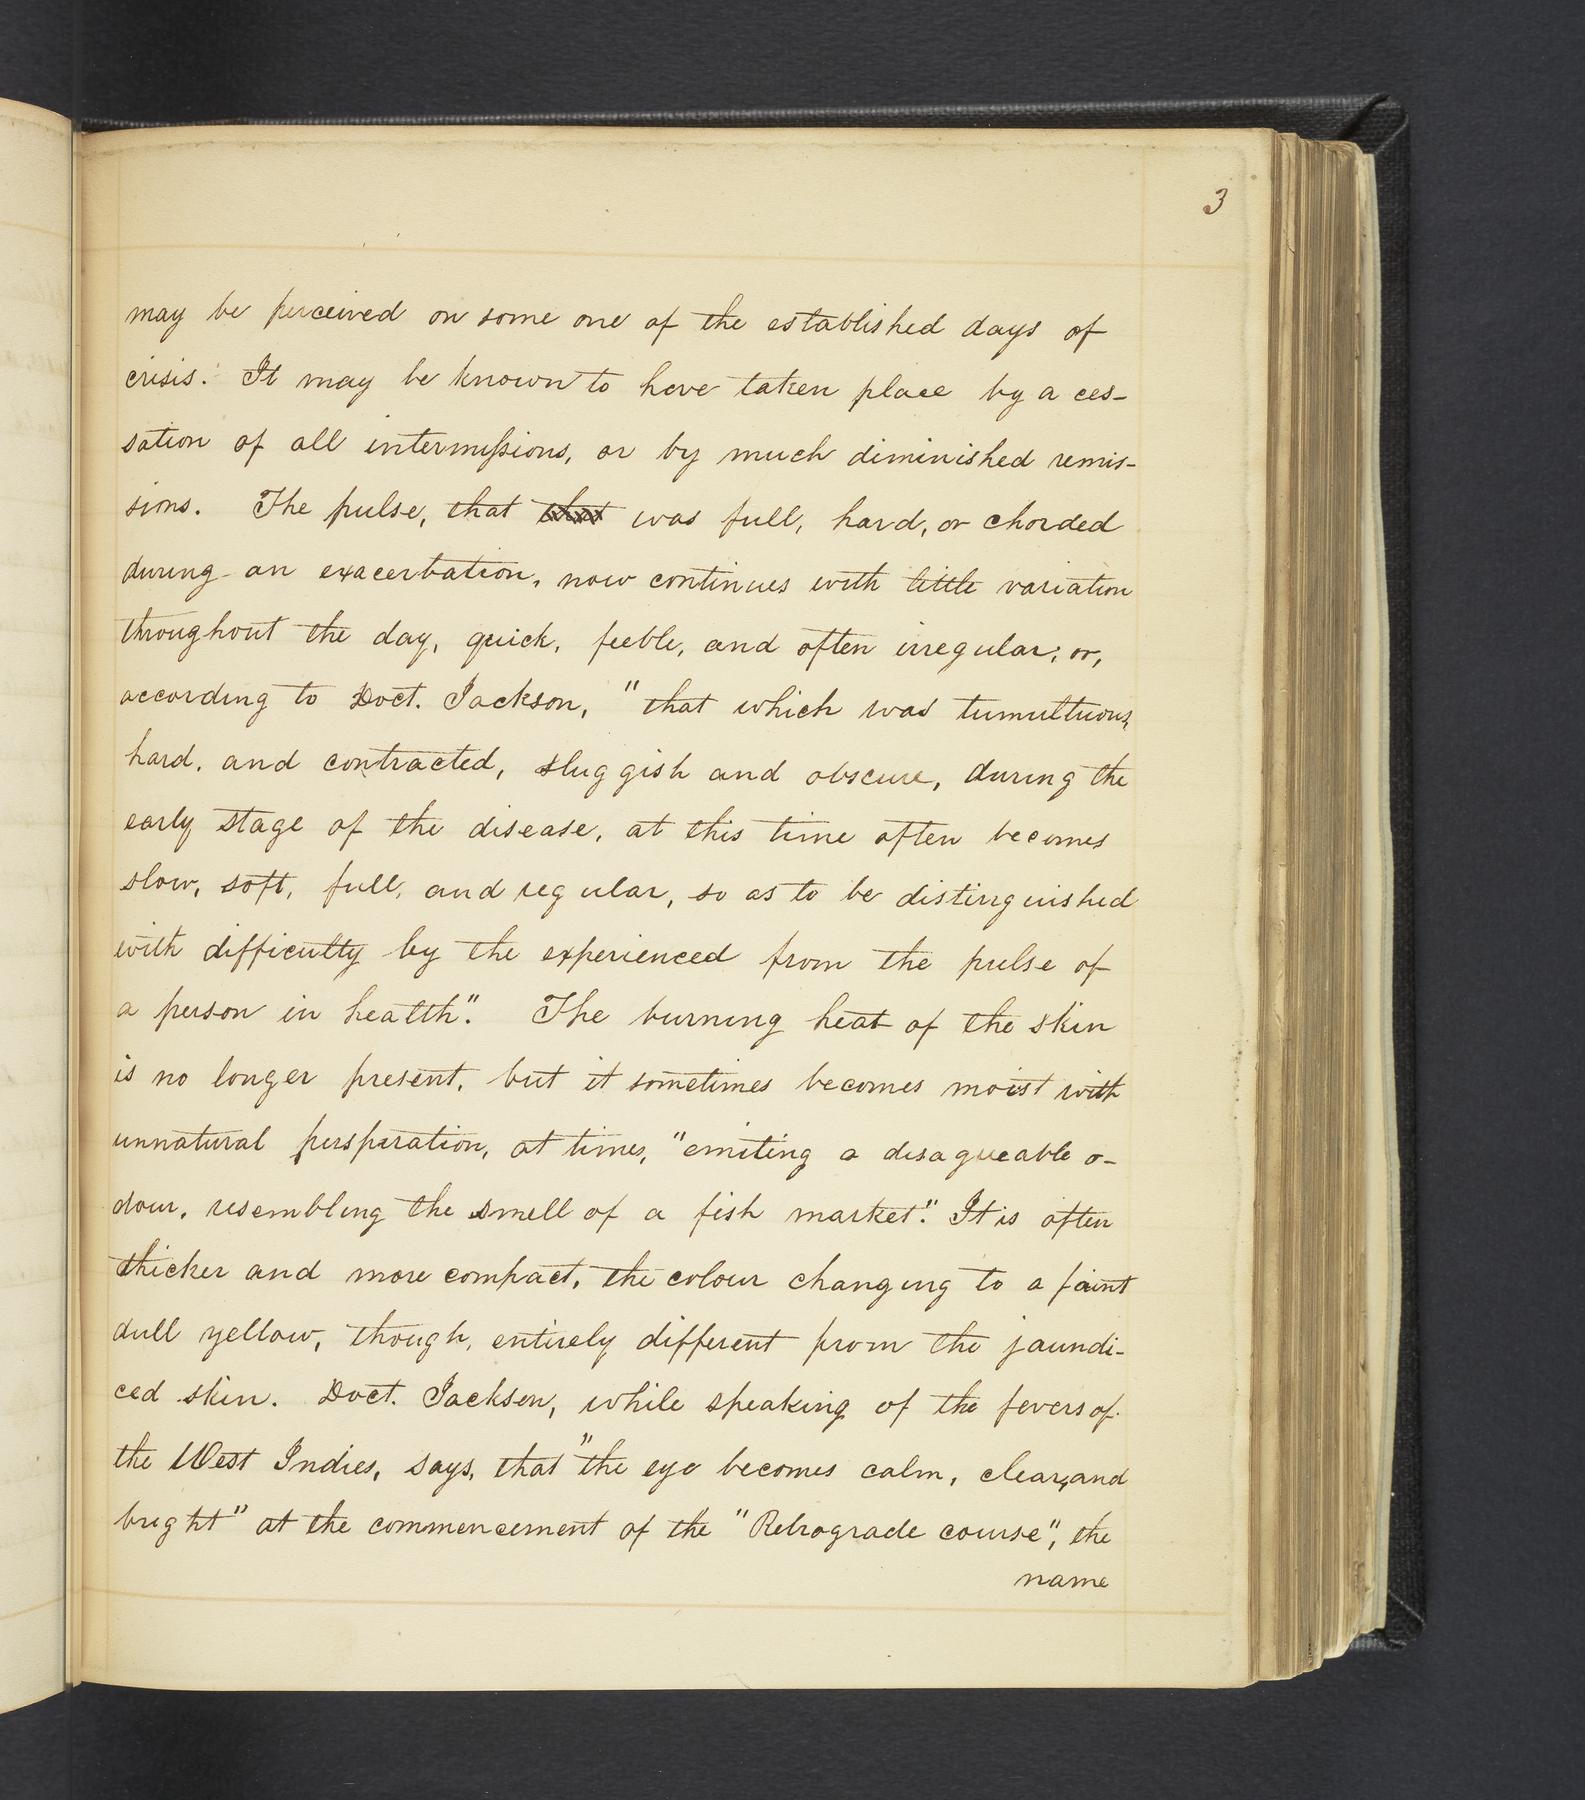 3
may be perceived on some one of the established days of
crisis. It may be known to have taken place by a ces-
sation of all intermissions, or by much diminished remis-
sions. The pulse, that that was full, hard, or chorded
during an exacerbation, now continues with little variation
throughout the day, quick, feeble, and often irregular; or,
according to Doct. Jackson, "that which was tumultuous,
hard, and contracted, sluggish and obscure, during the
early stage of the disease, at this time often becomes
slow, soft, full, and regular, so as to be distinguished
with difficulty by the experienced from the pulse of
a person in health". The burning heat of the skin
is no longer present, but it sometimes becomes moist with
unnatural perspiration, at times, "emiting a disagreeable o-
dour, resembling the smell of a fish market". It is often
thicker and more compact, the colour changing to a faint
dull yellow, though, entirely different from the jaundi-
ced skin. Doct. Jackson, while speaking of the fevers of
the West Indies, says, that "the eye becomes calm, clear, and
bright" at the commencement of the "Retrograde course", the
name